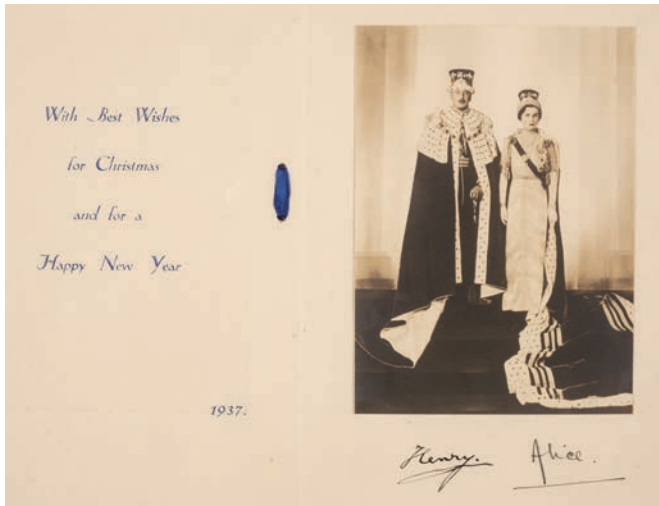 With Best Wishes
for Christmas
and for a
Happy New Year
1937.
Henry. Alice.